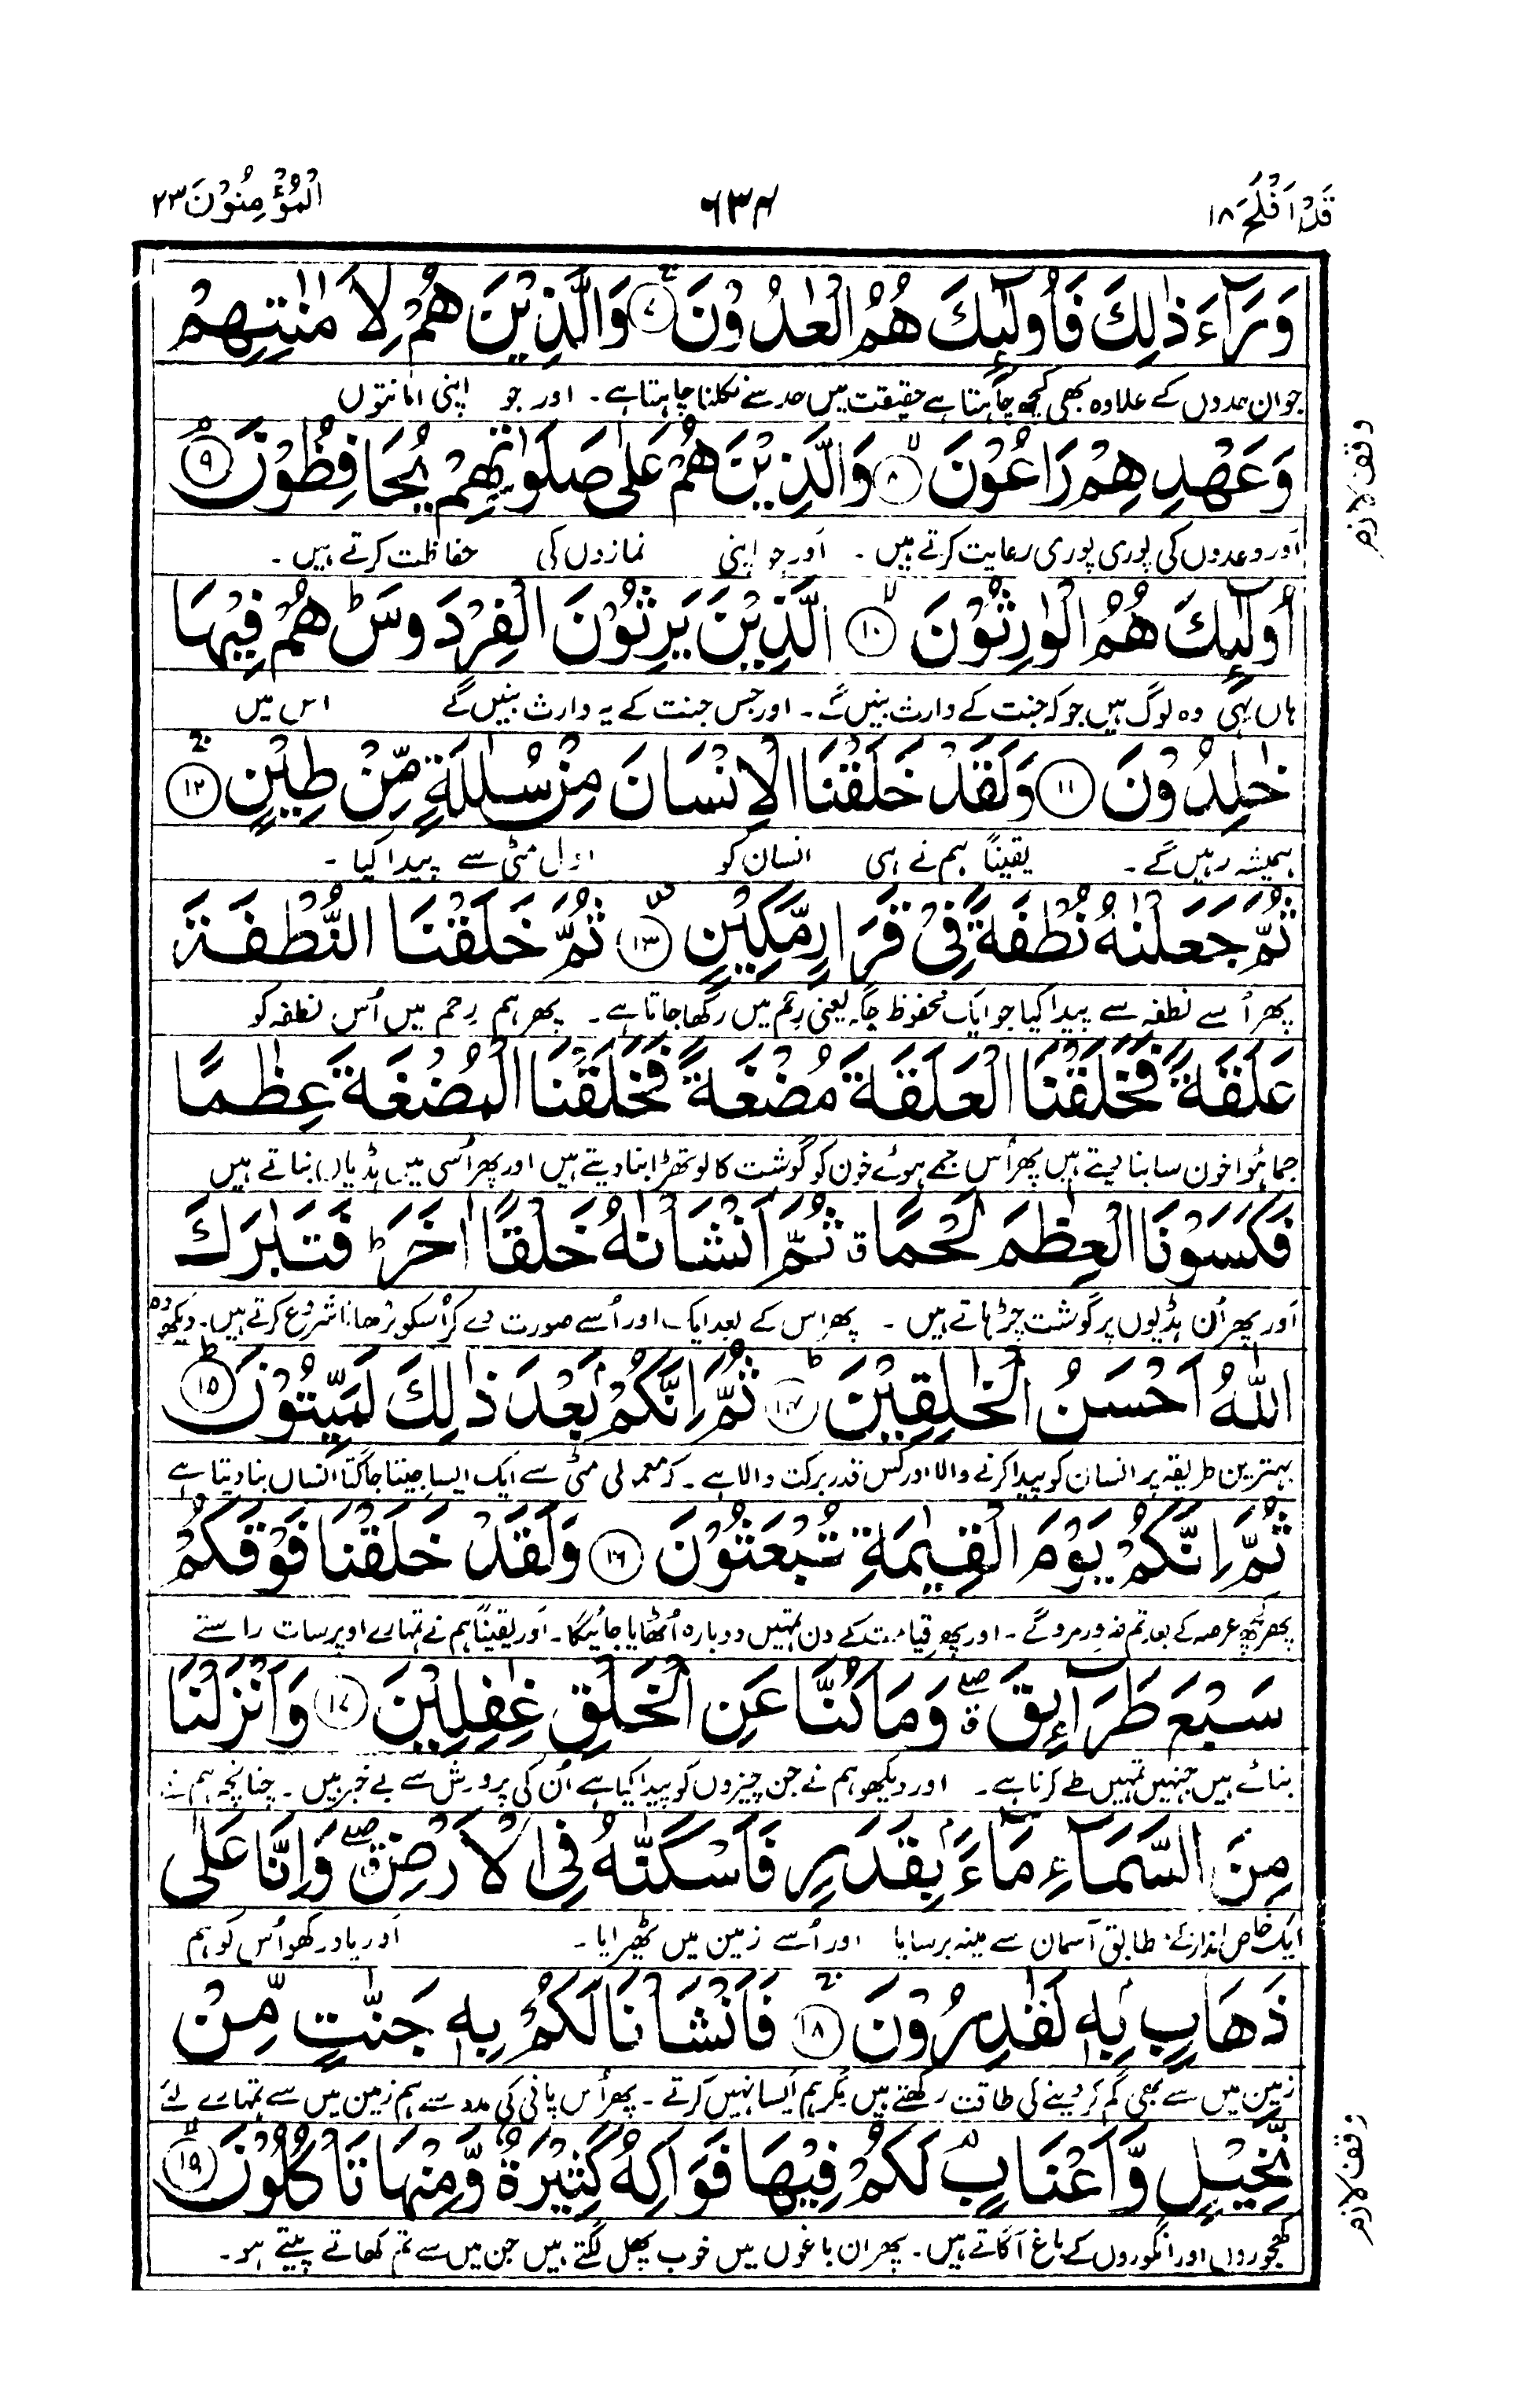 قَدْ اَفْلَحَ ۱۸
۶۳۴
الْمُؤْمِنُوْنَ ۲۳
وَرَآءَ ذٰلِكَ فَاُولٰٓئِكَ هُمُ الْعٰدُوْنَ ۷ وَالَّذِيْنَ هُمْ لِاَمٰنٰتِهِمْ
جو ان حدوں کے علاوہ بھی کچھ چاہتا ہے حقیقت میں حد سے نکلنا چاہتا ہے ۔ اور جو اپنی امانتوں
وَعَهْدِهِمْ رَاعُوْنَ ۸ وَالَّذِيْنَ هُمْ عَلٰى صَلَوٰتِهِمْ يُحَافِظُوْنَ ۹
اَور وعدوں کی پوری پوری رعایت کرتے ہیں ۔ اَور جو اپنی نمازوں کی حفاظت کرتے ہیں ۔
وقف لازم
اُولٰٓئِكَ هُمُ الْوٰرِثُوْنَ ۱۰ الَّذِيْنَ يَرِثُوْنَ الْفِرْدَوْسَ ؕ هُمْ فِيْهَا
ہاں یہی وہ لوگ ہیں جو کہ جنت کے وارث بنیں گے ۔ اور جس جنت کے یہ وارث بنیں گے اس میں
خٰلِدُوْنَ ۱۱ وَلَقَدْ خَلَقْنَا الْاِنْسَانَ مِنْ سُلٰلَةٍ مِّنْ طِيْنٍ ۱۲
ہمیشہ رہیں گے ۔ یقیناً ہم نے ہی انسان کو اوّل مٹی سے پیدا کیا ۔
ثُمَّ جَعَلْنٰهُ نُطْفَةً فِيْ قَرَارٍ مَّكِيْنٍ ۱۳ ثُمَّ خَلَقْنَا النُّطْفَةَ
پھر اُسے نطفہ سے پیدا کیا جو ایک محفوظ جگہ یعنی رِحم میں رکھا جاتا ہے ۔ پھر ہم رحم میں اُس نطفہ کو
عَلَقَةً فَخَلَقْنَا الْعَلَقَةَ مُضْغَةً فَخَلَقْنَا الْمُضْغَةَ عِظٰمًا
جما ہُوا خون سا بنا لیتے ہیں پھر اُس جمے ہوئے خون کو گوشت کا لوتھڑا بنا دیتے ہیں اور پھر اُسی میں ہڈیاں بناتے ہیں
فَكَسَوْنَا الْعِظٰمَ لَحْمًا ۃ ثُمَّ اَنْشَاْنٰهُ خَلْقًا اٰخَرَ ؕ فَتَبٰرَكَ
اَور پھر اُن ہڈیوں پر گوشت چڑھاتے ہیں ۔ پھر اس کے بعد ایک اور اُسے صورت دے کر اُسکو بڑھانا شروع کرتے ہیں ۔ دیکھو وہ
اللّٰهُ اَحْسَنُ الْخٰلِقِيْنَ ؕ ۱۴ ثُمَّ اِنَّكُمْ بَعْدَ ذٰلِكَ لَمَيِّتُوْنَ ؕ ۱۵
بہترین طریقہ پر انسان کو پیدا کرنے والا اور کس قدر برکت والا ہے ۔ کہ معمولی مٹی سے ایک ایسا جیتا جاگتا انسان بنا دیتا ہے
ثُمَّ اِنَّكُمْ يَوْمَ الْقِيٰمَةِ تُبْعَثُوْنَ ۱۶ وَلَقَدْ خَلَقْنَا فَوْقَكُمْ
پھر کچھ عرصہ کے بعد تم ضرور مرو گے ۔ اور پھر قیامت کے دن تمہیں دوبارہ اُٹھایا جائیگا ۔ اَور یقیناً ہم نے تمہارے اوپر سات راستے
سَبْعَ طَرَآئِقَ ۖۃ وَمَا كُنَّا عَنِ الْخَلْقِ غٰفِلِيْنَ ۱۷ وَاَنْزَلْنَا
بنائے ہیں جنہیں تمہیں طے کرنا ہے ۔ اور دیکھو ہم نے جن چیزوں کو پیدا کیا ہے اُن کی پرورش سے بے خبر ہیں ۔ چنانچہ ہم نے
مِنَ السَّمَآءِ مَآءًۢ بِقَدَرٍ فَاَسْكَنّٰهُ فِي الْاَرْضِ ۖق وَاِنَّا عَلٰى
ایک خاص انداز کے مطابق آسمان سے مینہ برسایا اور اُسے زمین میں ٹھیرایا ۔ اَور یاد رکھو اُس کو ہم
ذَهَابٍۢ بِهٖ لَقٰدِرُوْنَ ۱۸ فَاَنْشَاْنَا لَكُمْ بِهٖ جَنّٰتٍ مِّنْ
زمین میں سے بھی گم کر دینے کی طاقت رکھتے ہیں مگر ہم ایسا نہیں کرتے ۔ پھر اُس پانی کی مدد سے ہم زمین میں سے تمہارے لئے
نَّخِيْلٍ وَّاَعْنَابٍ ۘ لَكُمْ فِيْهَا فَوَاكِهُ كَثِيْرَةٌ وَّمِنْهَا تَاْكُلُوْنَ ۱۹
کھجوروں اور انگوروں کے باغ اُگاتے ہیں ۔ پھر ان باغوں میں خوب پھل لگتے ہیں جن میں سے تم کھاتے پیتے ہو ۔
وقف لازم